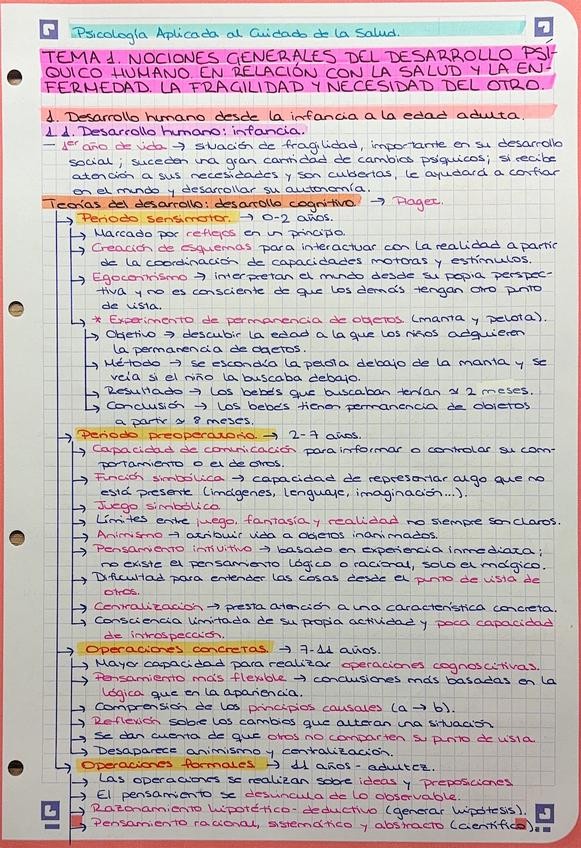 Psicología Aplicada al Cuidado de la Salud.
TEMA 1. NOCIONES GENERALES DEL DESARROLLO PSÍ-
QUICO HUMANO EN RELACIÓN CON LA SALUD Y LA EN-
FERMEDAD. LA FRAGILIDAD Y NECESIDAD DEL OTRO.
1. Desarrollo humano desde la infancia a la edad adulta.
1.1. Desarrollo humano: infancia.
— 1er año de vida → situación de fragilidad, importante en su desarrollo
social; suceden una gran cantidad de cambios psíquicos; si recibe
atención a sus necesidades y son cubiertas, le ayudará a confiar
en el mundo y desarrollar su autonomía.
Teorías del desarrollo: desarrollo cognitivo → Piaget.
→ Periodo sensimotor. → 0-2 años.
→ Marcado por reflejos en un principio.
→ Creación de esquemas para interactuar con la realidad a partir
de la coordinación de capacidades motoras y estímulos.
→ Egocentrismo → interpretan el mundo desde su propia perspec-
tiva y no es consciente de que los demás tengan otro punto
de vista.
→ * Experimento de permanencia de objetos (manta y pelota).
→ Objetivo → descubrir la edad a la que los niños adquieren
la permanencia de objetos.
→ Método → se escondía la pelota debajo de la manta y se
veía si el niño la buscaba debajo.
→ Resultado → los bebés que buscaban tenían ≈ 2 meses.
→ Conclusión → los bebés tienen permanencia de objetos
a partir ≈ 8 meses.
→ Periodo preoperatorio. → 2-7 años.
→ Capacidad de comunicación para informar o controlar su com-
portamiento o el de otros.
→ Función simbólica → capacidad de representar algo que no
está presente (imágenes, lenguaje, imaginación...).
→ Juego simbólico
→ Límites entre juego, fantasía y realidad no siempre son claros.
→ Animismo → atribuir vida a objetos inanimados.
→ Pensamiento intiuitivo → basado en experiencia inmediata;
no existe el pensamiento lógico o racional, solo el mágico.
→ Dificultad para entender las cosas desde el punto de vista de
otros.
→ Centralización → presta atención a una característica concreta.
→ Consciencia limitada de su propia actividad y poca capacidad
de introspección.
→ Operaciones concretas. → 7-11 años.
→ Mayor capacidad para realizar operaciones cognoscitivas.
→ Pensamiento más flexible → conclusiones más basadas en la
lógica que en la apariencia.
→ Comprensión de los principios causales (a → b).
→ Reflexión sobre los cambios que alteran una situación
→ Se dan cuenta de que otros no comparten su punto de vista
→ Desaparece animismo y centralización.
→ Operaciones formales → 11 años - adultez.
→ Las operaciones se realizan sobre ideas y preposiciones
→ El pensamiento se desvincula de lo observable.
→ Razonamiento hipotético-deductivo (generar hipótesis).
→ Pensamiento racional, sistemático y abstracto (científico).